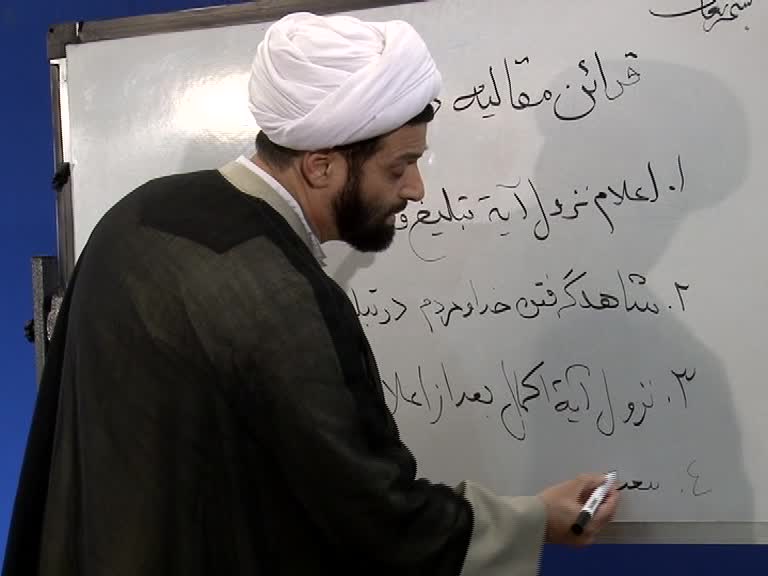 بسمه تعالی
قرائن مقالیه
۱. اعلام نزول آیة تبلیغ
۲. شاهد گرفتن خدا و مردم در
۳. نزول آیة اکمال بعد از
٤.